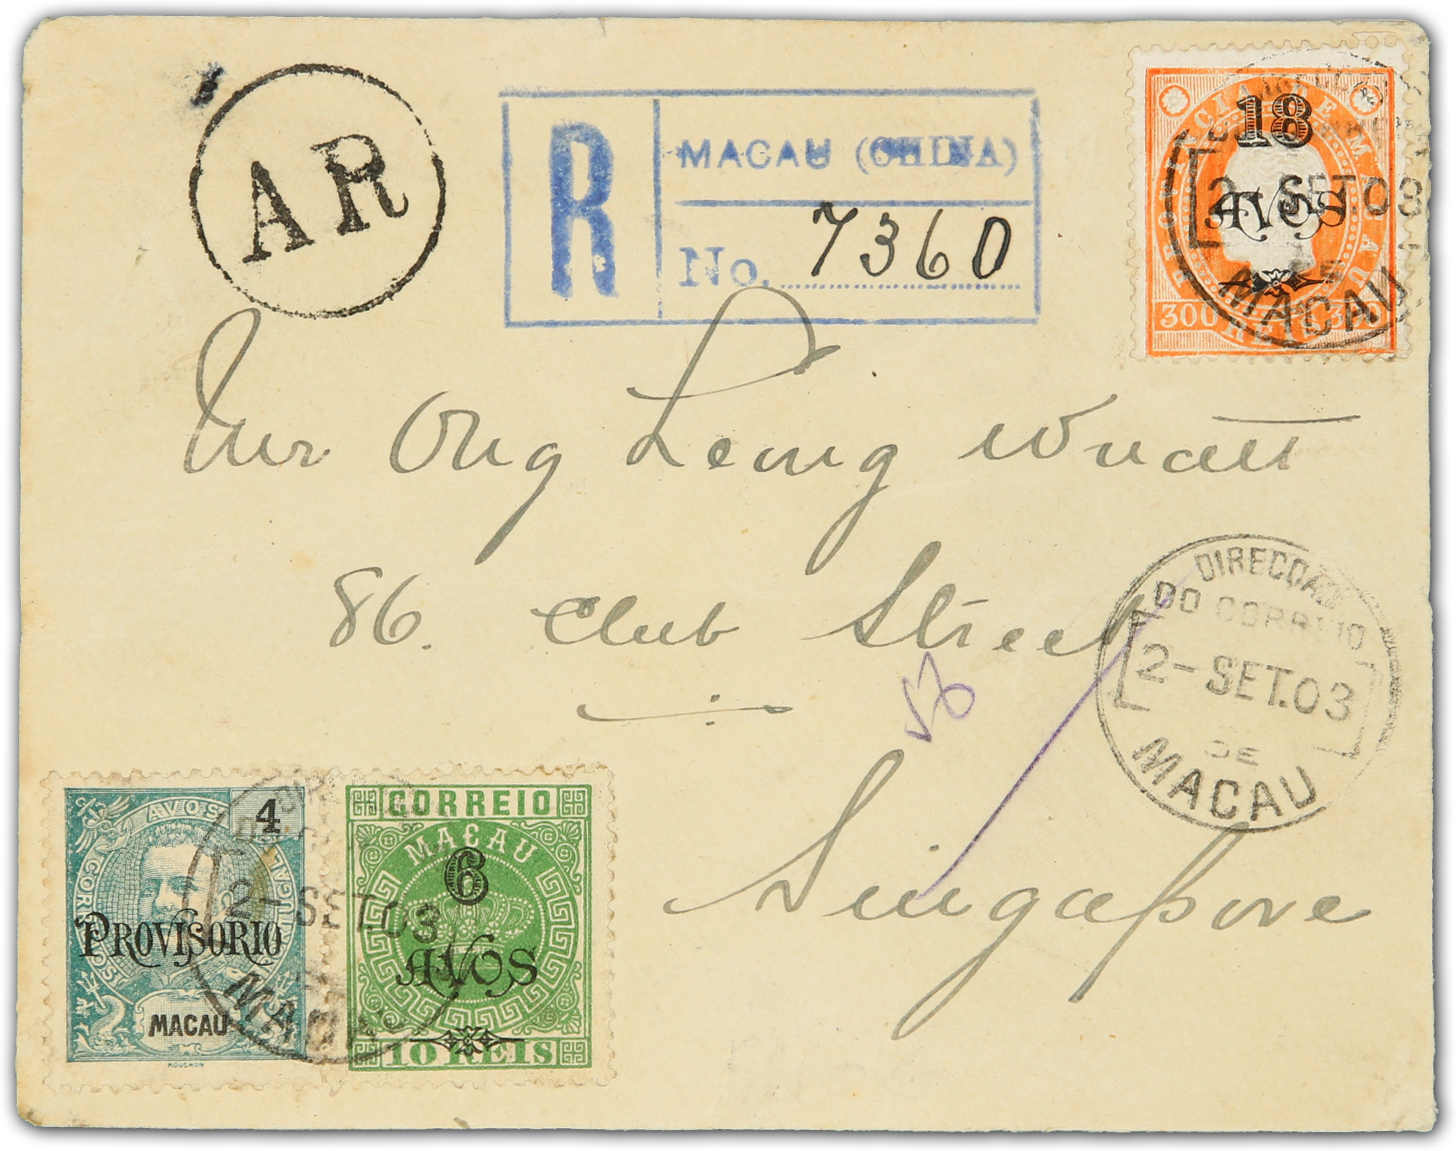 AR
R
MACAU (CHINA)
No. 7360
18
AVOS
300 REIS 300
2-SET.03
MACAU
Mr Ong Leong
86. Club Street
Singapore
DIRECÇÃO
DO CORREIO
2-SET.03
DE
MACAU
AVOS
4
CORREIOS
PORTUGAL
PROVISORIO
MACAU
MOUCHON
2-SET.03
MACAU
CORREIO
MACAU
6
AVOS
10 REIS